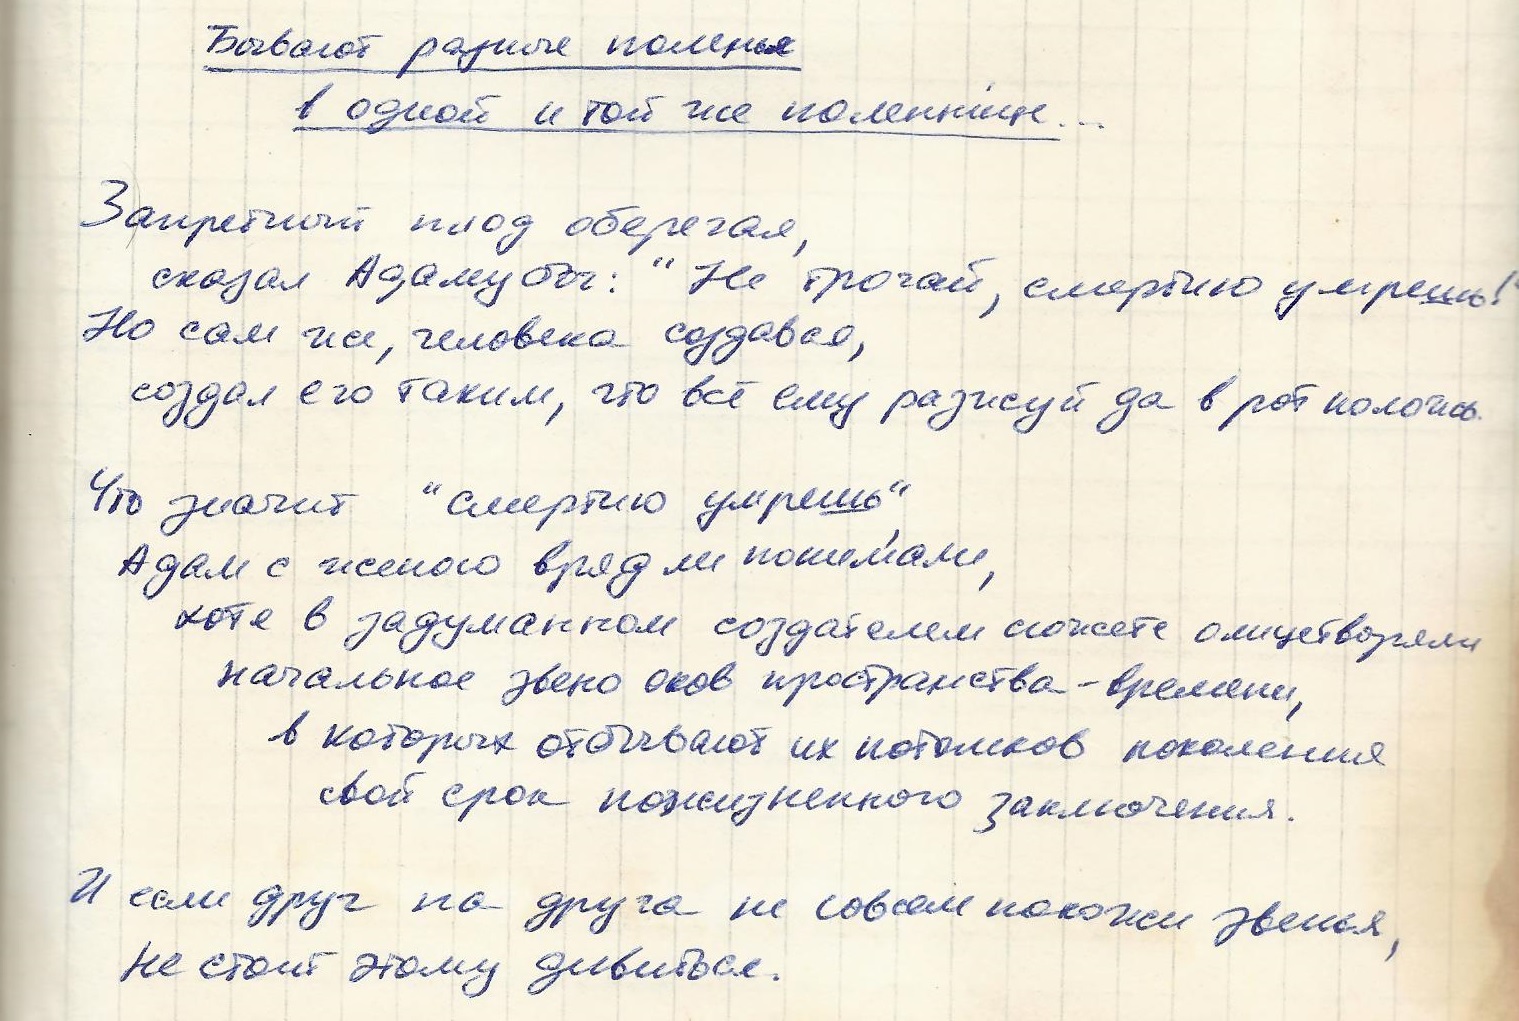 Бывают разные поленья
в одной и той же поленнице...
Запретный плод оберегая,
сказал Адаму бог: "Не трогай, смертию умрешь!"
Но сам же, человека создавая,
создал его таким, что всё ему разжуй да в рот положь.
Что значит "смертию умрешь",
Адам с женою вряд ли понимали,
хотя в задуманном создателем сюжете олицетворяли
начальное звено оков пространства-времени,
в которых отбывают их потомков поколения
свой срок пожизненного заключения.
И если друг на друга не совсем похожи звенья,
не стоит этому дивиться.